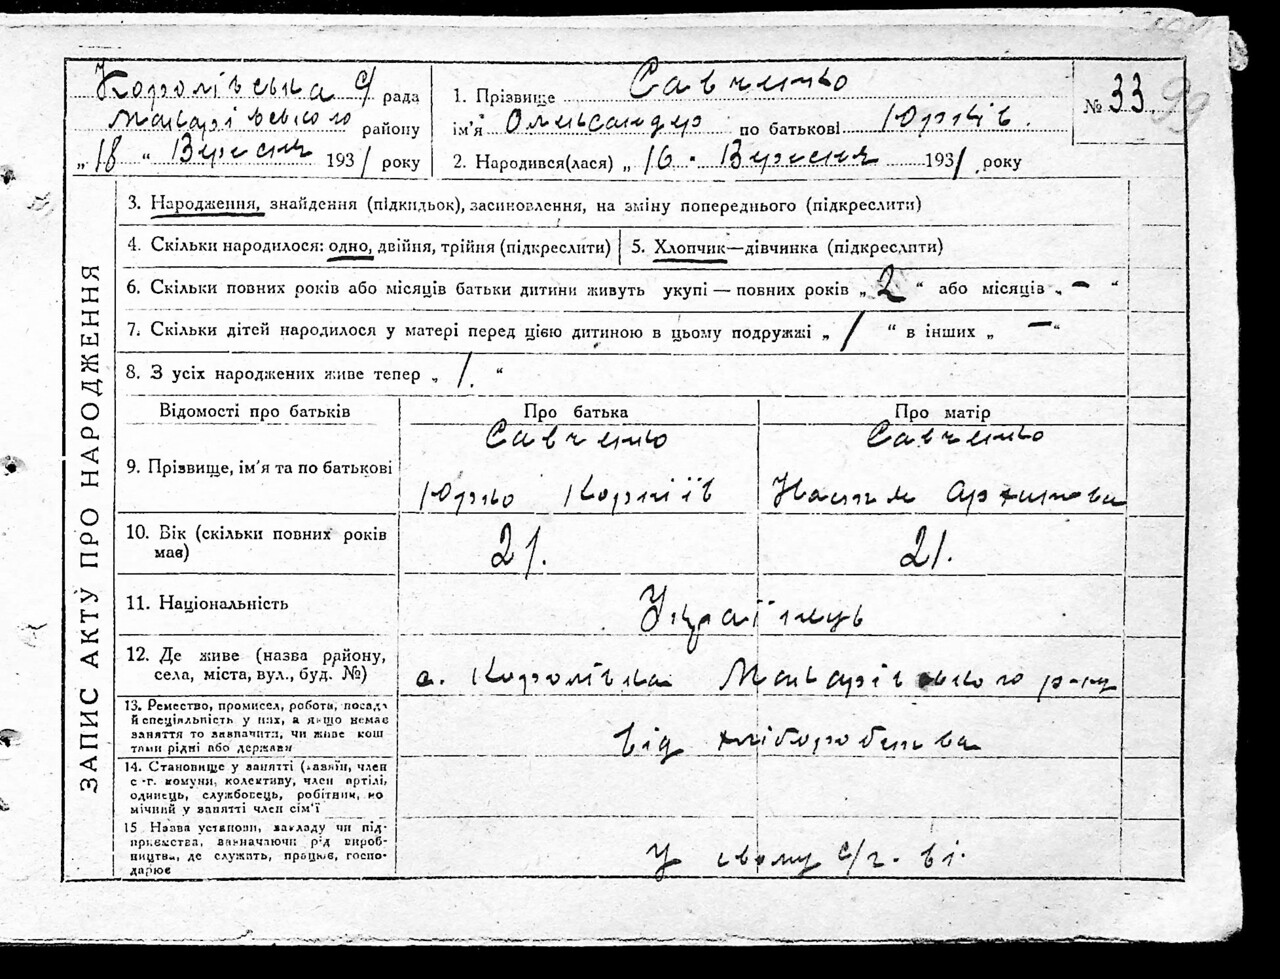 Королівська с/ рада
Макарівського району
„18“ Вересня 1931 року
1. Прізвище Савченко
ім'я Олександр по батькові Юрків.
2. Народився(лася) „16. Вересня 1931, року
№ 33
99
3. Народження, знайдення (підкидьок), засиновлення, на зміну попереднього (підкреслити)
4. Скільки народилося: одно, двійня, трійня (підкреслити)
5. Хлопчик—дівчинка (підкреслити)
6. Скільки повних років або місяців батьки дитини живуть укупі — повних років „2“ або місяців „—“
7. Скільки дітей народилося у матері перед цією дитиною в цьому подружжі „1“ в інших „—“
8. З усіх народжених живе тепер „1.“
ЗАПИС АКТУ ПРО НАРОДЖЕННЯ
Відомості про батьків
Про батька
Про матір
9. Прізвище, ім'я та по батькові
Савченко
Юрко Корніїв
Савченко
Настя Архипова
10. Вік (скільки повних років
має)
21.
21.
11. Національність
Українць
12. Де живе (назва району,
села, міста, вул., буд. №)
с. Королівка Макарівського р-ну
13. Ремество, промисел, робота, посада
й спеціяльність у них, а якщо немає
заняття то зазначити, чи живе кош
тами рідні або держави
від хліборобства
14. Становище у занятті (хазяїн, член
с.-г. комуни, колективу, член артілі,
одинець, службовець, робітник, по
мічний у занятті член сім'ї
15 Назва установи, закладу чи під-
приємства, зазначаючи рід вироб-
ництва, де служить, працює, госпо-
дарює
У свому с/г.